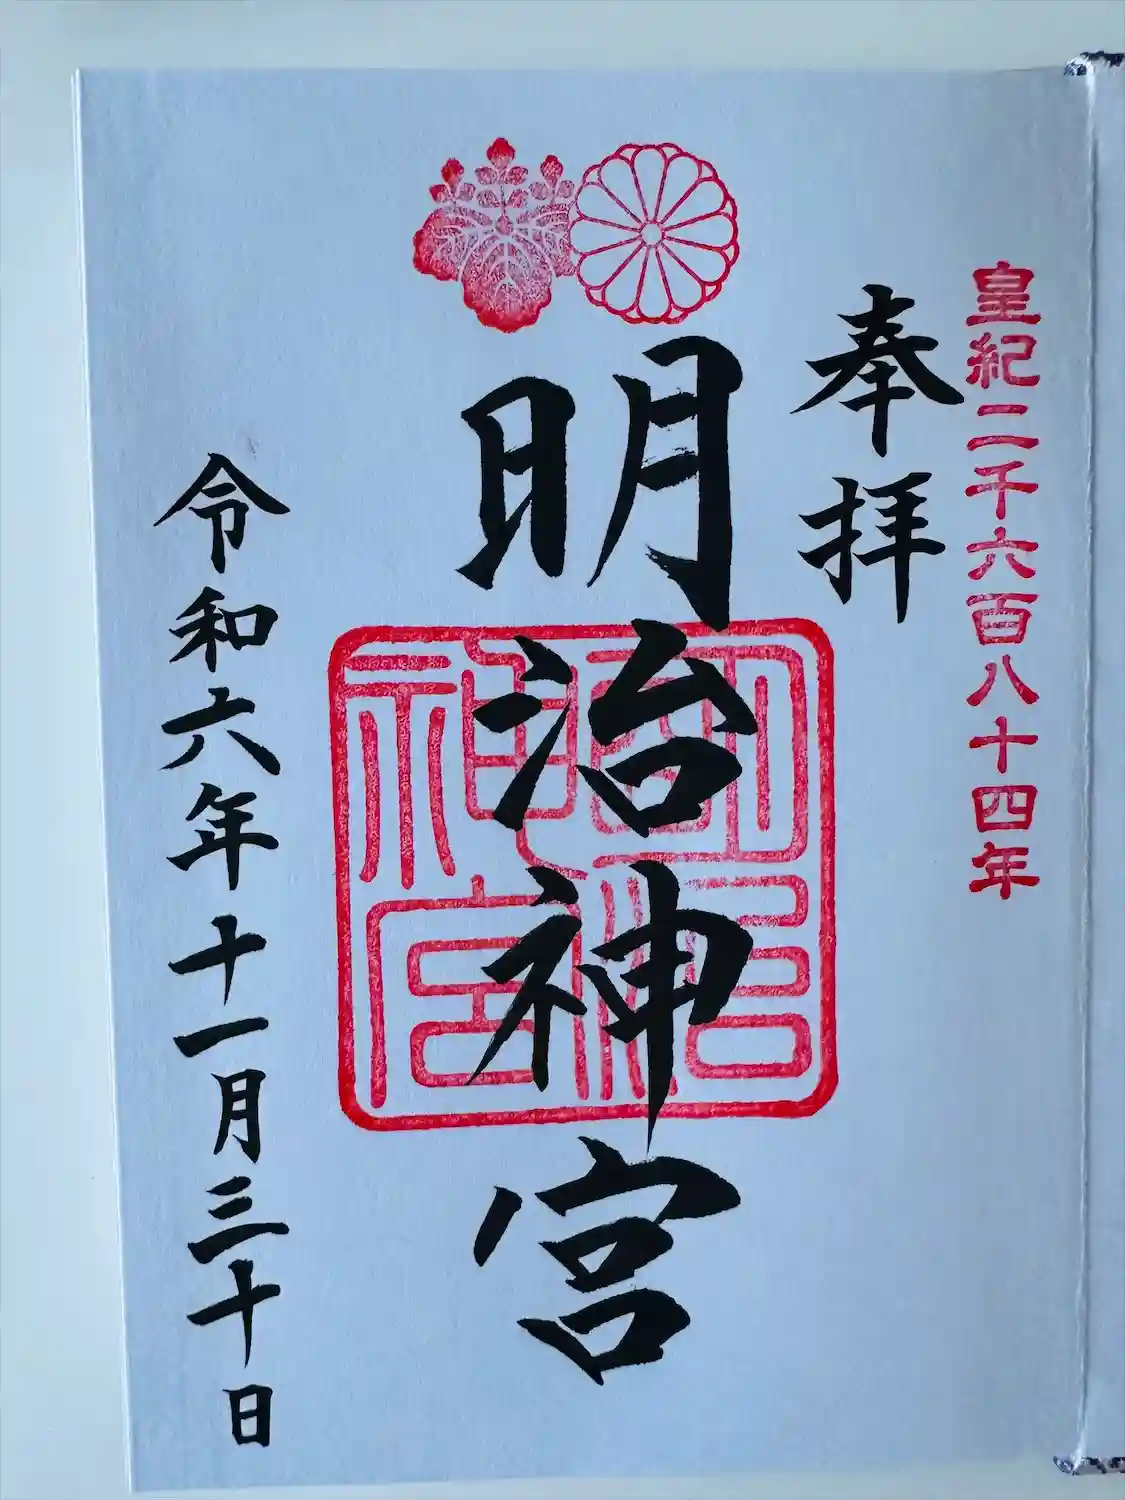 皇紀二千六百八十四年
奉拝
明治神宮
明治神宮
令和六年十一月三十日